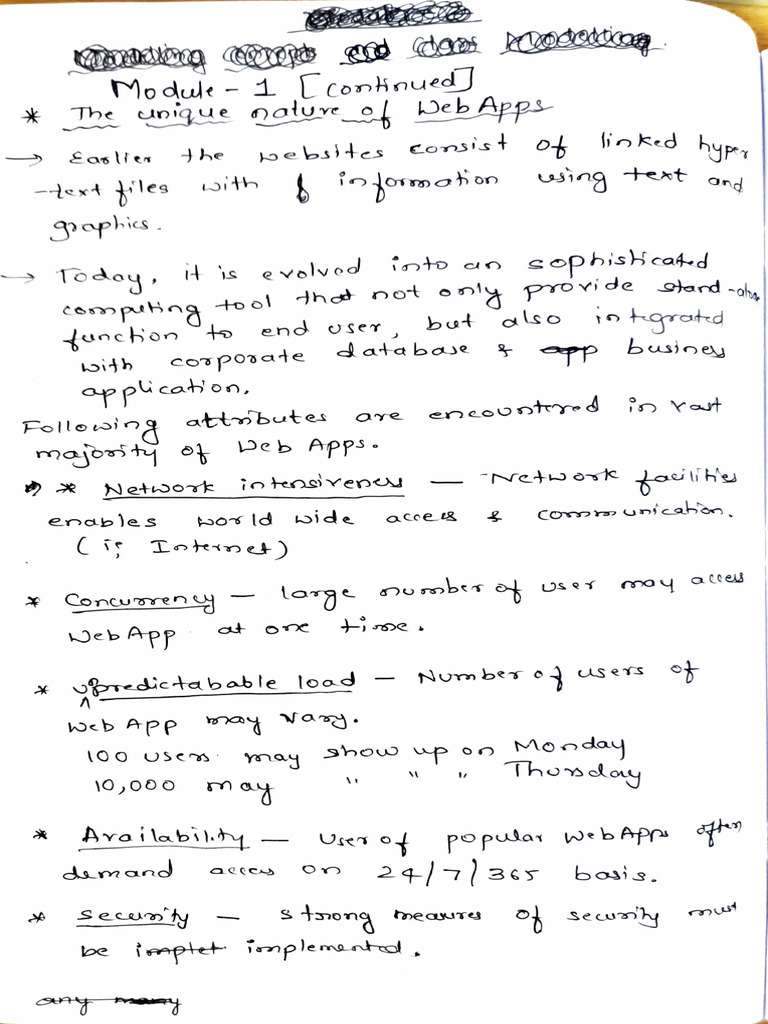 Module - 1 [continued]
* The unique nature of WebApps
→ Earlier the websites consist of linked hyper
-text files with information using text and
graphics.
→ Today, it is evolved into an sophisticated
computing tool that not only provide stand-alone
function to end user, but also integrated
with corporate database & app business
application.
Following attributes are encountered in vast
majority of Web Apps.
* Network intensiveness — Network facilities
enables world wide access & communication.
(i; Internet)
* Concurrency — large number of user may access
WebApp at one time.
* unpredictabable load — Number of users of
Web App may vary.
100 users may show up on Monday
10,000 may " " " Thursday
* Availability — User of popular WebApps often
demand access on 24/7/365 basis.
* Security — strong measures of security must
be implet implemented.
any many